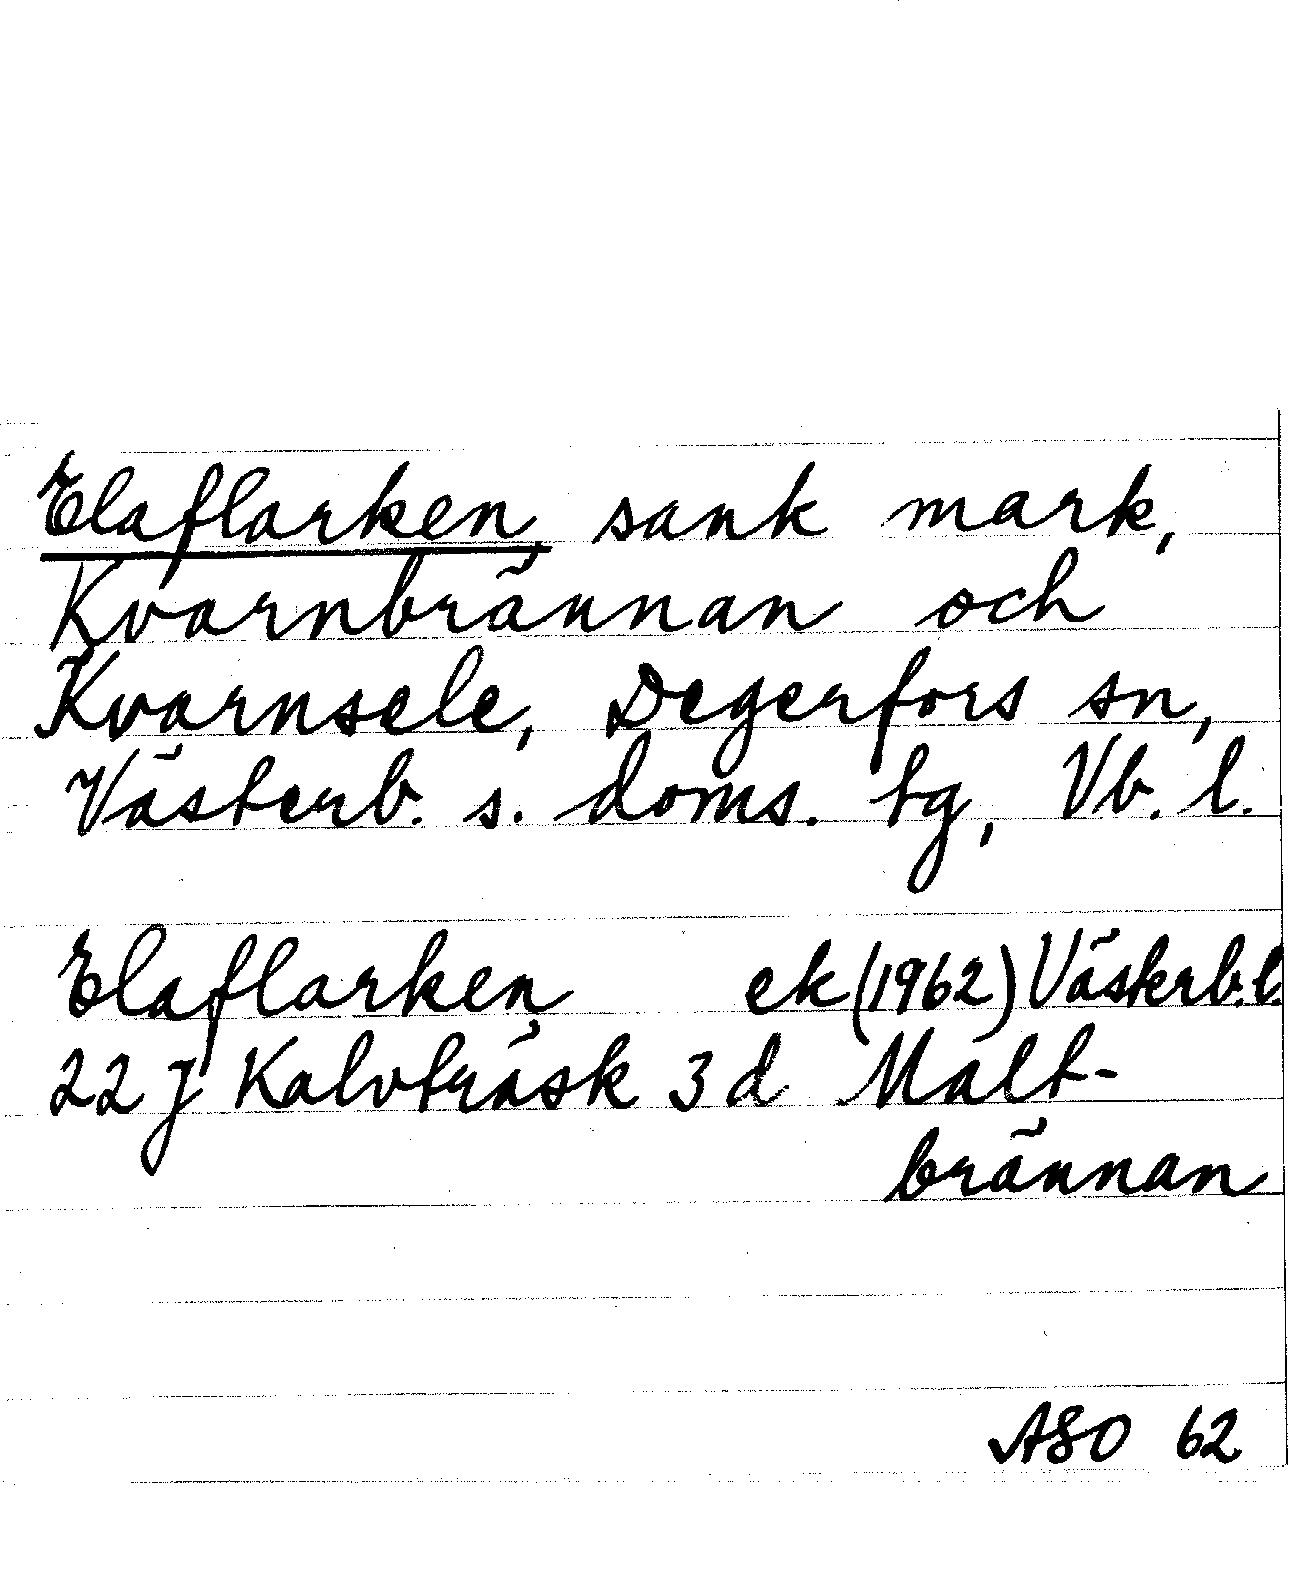 Elaflarken, sank mark,
Kvarnbrännan och
Kvarnsele, Degerfors sn,
Västerb. s. doms. tg, Vb. l.
Elaflarken ek (1962) Västerb. l.
22 J Kalvträsk 3 d Malt-
brännan
ASO 62